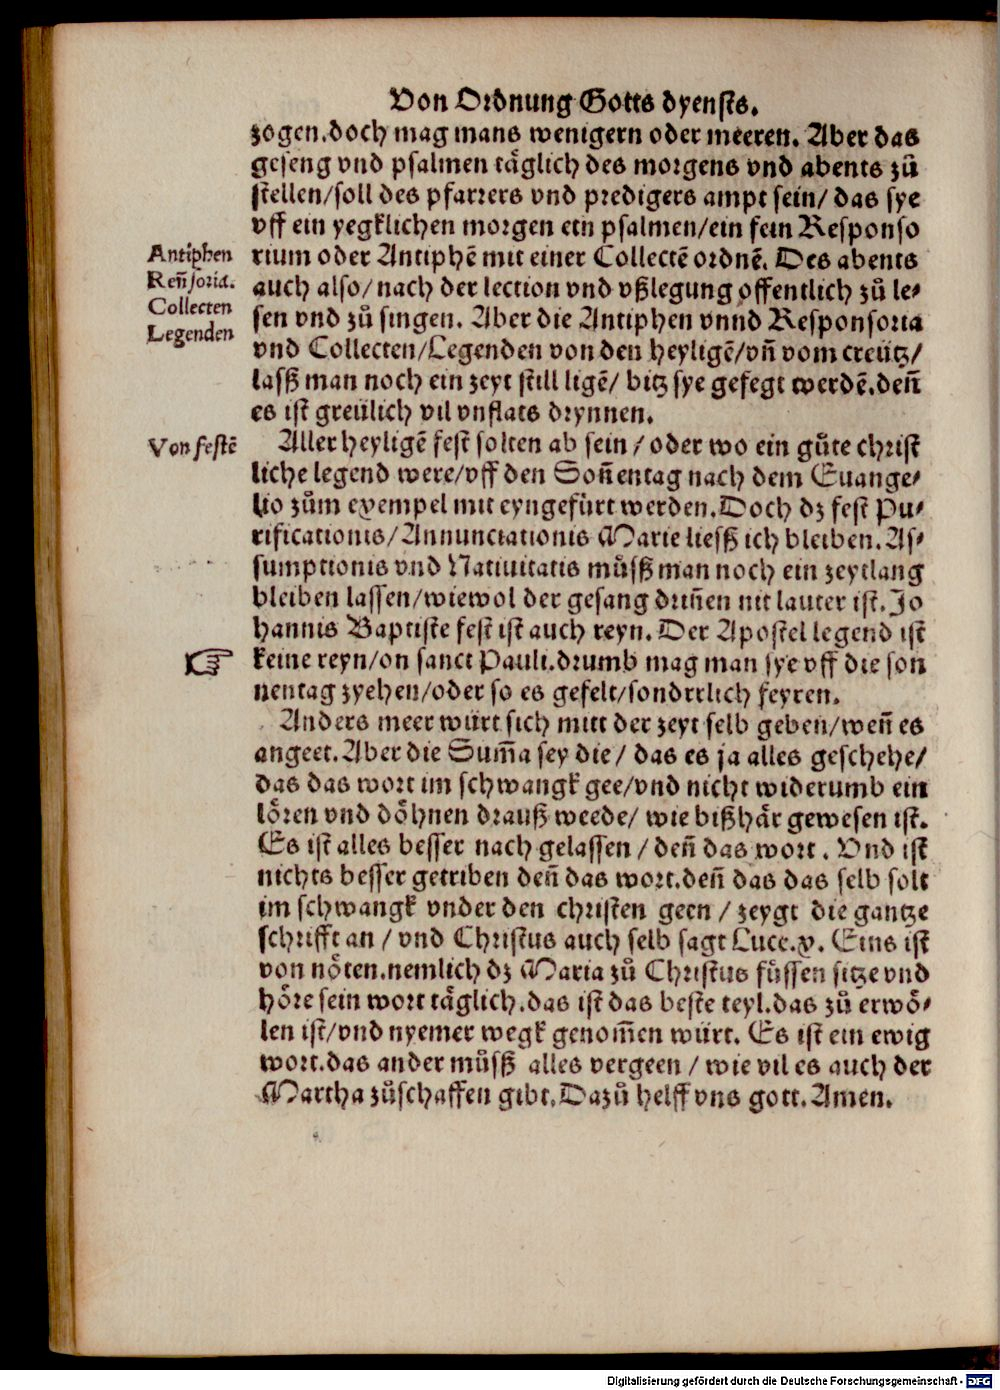 Von Ordnung Gotts dyensts.
zogen.doch mag mans wenigern oder meeren. Aber das
geseng vnd psalmen täglich des morgens vnd abents zů
stellen/soll des pfarrers vnd predigers ampt sein/ das sye
vff ein yegklichen morgen ein psalmen/ein fein Responso
rium oder Antiphē mit einer Collectē ordnē. Des abents
auch also/ nach der lection vnd vßlegung offentlich zů le⸗
sen vnd zů singen. Aber die Antiphen vnnd Responsoria
vnd Collecten/Legenden von den heyligē/vn̄ vom creütz/
lasß man noch ein zeyt still ligē/ bitz sye gefegt werdē.den̄
es ist greülich vil vnflats drynnen.
Antiphen
Ren̄soria.
Collecten
Legenden
Aller heyligē fest solten ab sein / oder wo ein gůte christ
liche legend were/vff den Son̄entag nach dem Euange⸗
lio zům exempel mit eyngefürt werden.Doch dz fest Pu⸗
rificationis/Annunciationis Marie liesß ich bleiben.As⸗
sumptionis vnd Natiuitatis můsß man noch ein zeytlang
bleiben lassen/wiewol der gesang drin̄en nit lauter ist.Jo
hannis Baptiste fest ist auch reyn. Der Apostel legend ist
keine reyn/on sanct Pauli.drumb mag man sye vff die son
nentag zyehen/oder so es gefelt/sondrrlich feyren.
Von festē
Anders meer würt sich mitt der zeyt selb geben/wen̄ es
angeet.Aber die Sum̄a sey die/ das es ja alles geschehe/
das das wort im schwangk gee/vnd nicht widerumb ein
lören vnd döhnen drauß weede/ wie bißhär gewesen ist.
Es ist alles besser nach gelassen / den̄ das wort . Vnd ist
nichts besser getriben den̄ das wort.den̄ das das selb solt
im schwangk vnder den christen geen / zeygt die gantze
schrifft an / vnd Christus auch selb sagt Luce.x. Eins ist
von nöten.nemlich dz Maria zů Christus füssen sitze vnd
höre sein wort täglich.das ist das beste teyl.das zů erwö⸗
len ist/vnd nyemer wegk genom̄en würt. Es ist ein ewig
wort.das ander můsß alles vergeen / wie vil es auch der
Martha zůschaffen gibt.Dazů helff vns gott. Amen.
Digitalisierung gefördert durch die Deutsche Forschungsgemeinschaft - DFG